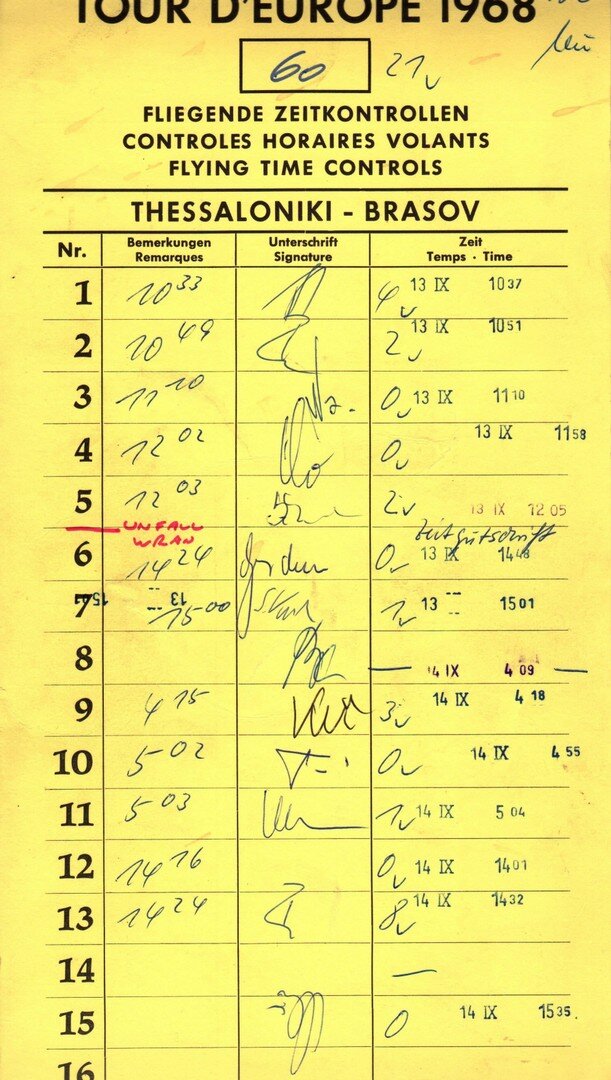 TOUR D'EUROPE 1968
60 21
FLIEGENDE ZEITKONTROLLEN
CONTROLES HORAIRES VOLANTS
FLYING TIME CONTROLS
THESSALONIKI - BRASOV
Nr. Bemerkungen Remarques Unterschrift Signature Zeit Temps · Time
1 10 33 4 13 IX 10 37
2 10 49 2 13 IX 10 51
3 11 10 0 13 IX 11 10
4 12 02 0 13 IX 11 58
5 12 03 2 13 IX 12 05
UNFALL Zeitgutschrift
WRAN
6 14 24 0 13 IX 14 48
7 15 00 1 13 15 01
8 14 IX 4 09
9 4 15 3 14 IX 4 18
10 5 02 0 14 IX 4 55
11 5 03 1 14 IX 5 04
12 14 16 0 14 IX 14 01
13 14 24 8 14 IX 14 32
14 —
15 0 14 IX 15 35
16